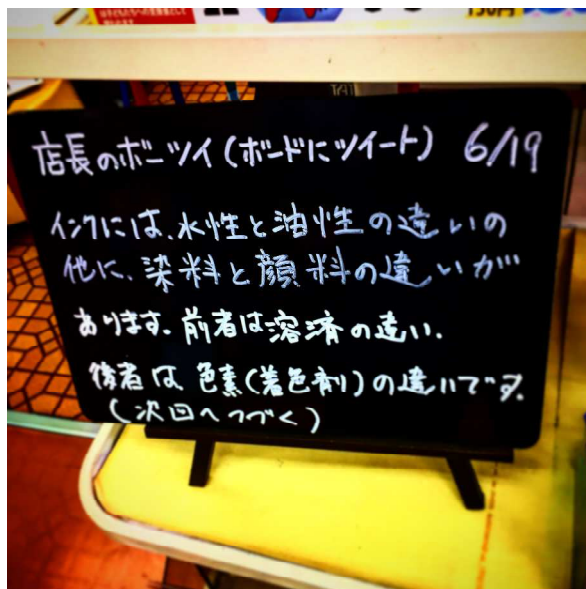 店長のボーツイ(ボードにツイート) 6/19
インクには、水性と油性の違いの
他に、染料と顔料の違いが
あります。前者は溶済の違い.
後者は色素(着色剤)の違いです。
(次回へつづく)